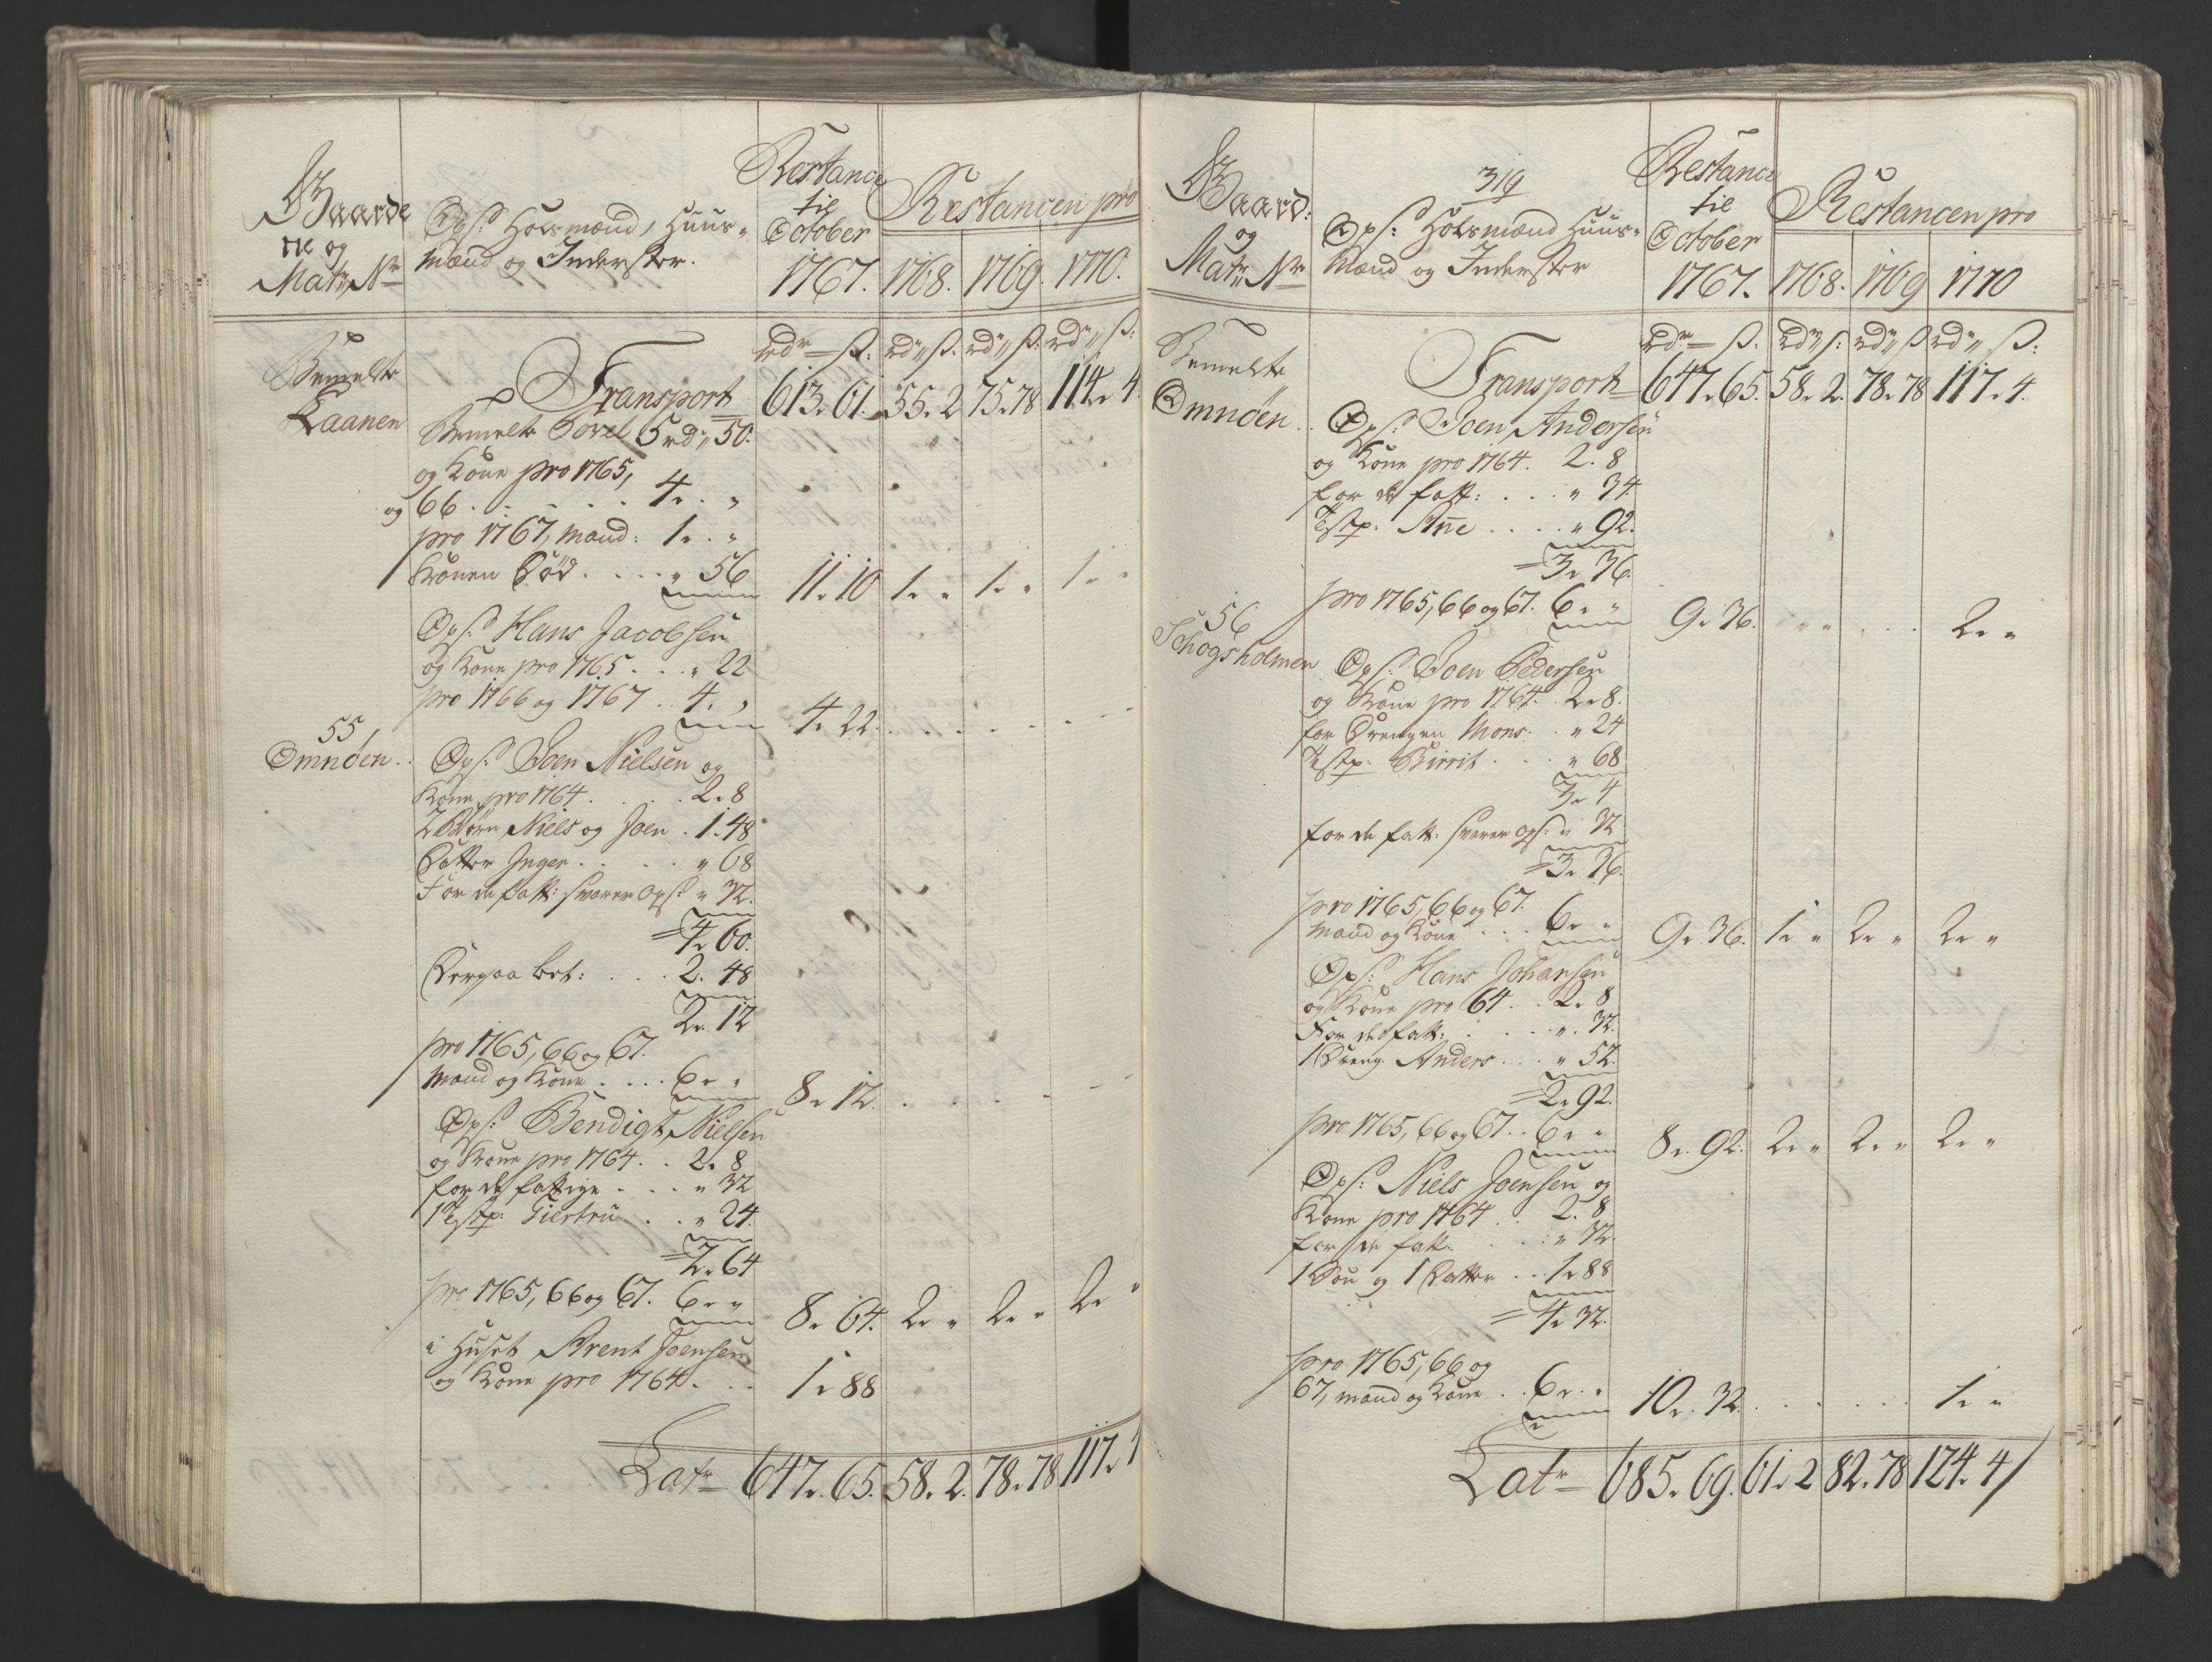 Gaarde
ne og
Matr. Nr.
Ops. Holsmænd, Huus-
mænd og Inderster.
Restance
til
October
1767.
Restancen pro
1768. 1769. 1770.
Bemelte
Laanen
rdr ß: rdr ß. rdr ß: rdr ß:
Transport 613. 61. 55. 2 75. 78 114. 4
Bemelte Povel 5 rd. 50.
og Kone pro 1765,
og 66. . . . . 4. "
pro 1767, mand: 1. "
Konen Død. . . . " 56 11. 10 1. " 1. " 1. "
Ops. Hans Jacobsen
og Kone pro 1765 . . " 22
pro 1766 og 1767 . 4. " 4. 22.
55
Omnöen.
Ops. Joen Nielsen og
Kone pro 1764 . . . 2. 8
2 Børn Niels og Joen . 1. 48
Datter Inger . . . . " 68
For de fatt: svarer Ops. " 32.
= 4. 60.
Derpaa bet: . . . 2. 48
2. 12
pro 1765, 66 og 67.
Mand og Kone . . . 6. " 8. 12.
Ops. Bendigt Nielsen
og Kone pro 1764 . . 2. 8
for de fattige . . . " 32
1 Tistp. Giertru . . " 24.
= 2. 64
pro 1765, 66 og 67. 6. " 8. 64. 2. " 2. " 2. "
i Huset Arent Joensen
og Kone pro 1764 . . . 1. 88
Latr 647. 65. 58. 2. 78. 78 117.
Gaard:
og
Matr. Nr.
319
Ops. Holsmænd Huus-
mænd og Inderster
Restance
til
October
1767.
Restancen pro
1768. 1769 1770
Bemelte
Omnöen.
rdr ß. rdr ß: rdr ß rdr ß:
Transport 647. 65. 58. 2. 78. 78 117. 4.
Ops. Joen Andersen
og Kone pro 1764. 2. 8
for de fatt: . . . " 34
Tistp. Ane . . . . " 92.
= 3. 36.
pro 1765, 66 og 67. 6. " 9. 36. " " . . . 2. "
56
Schogsholmen
Ops. Joen Pedersen
og Kone pro 1764. 2. 8.
for Drengen Mons. . " 24
Tistp. Birrit . . . " 68
3. 4
for de fatt: svarer ops: " 32
= 3. 36.
pro 1765, 66 og 67.
Mand og Kone . . . 6. " 9. 36. 1. " 2. " 2. "
Ops. Hans Johansen
og Kone pro 64 . . 2. 8
For de fatt: . . . . ". 32.
1 Dreng Anders . . " 52.
= 2. 92.
pro 1765, 66 og 67. . 6. " 8. 92. 2. " 2. " 2. "
Ops. Niels Joensen og
Kone pro 1764 . . 2. 8
for de fatt. . . . " 32.
1 Søn og 1 Datter . . 1. 88
= 4. 32.
pro 1765, 66 og
67, mand og Kone . . 6. " 10. 32. . . . . . 1. "
Latr 685. 69. 61. 2 82. 78 124. 4